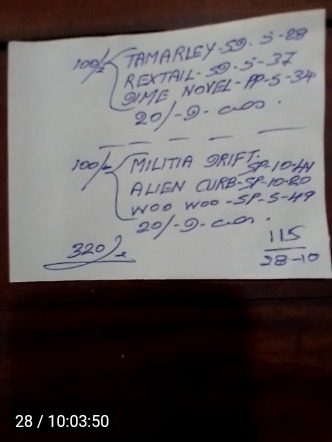 100/- TAMARLEY-SD.S-28
REXTAIL-SD-S-37
DIME NOVEL-PP-S-34
20/-D-
100/- MILITIA DRIFT.
SP-10-
ALIEN CURB-SP-10-20
WOO WOO-SP-S-49
20/-D-
320/-
115
28-10
28 / 10:03:50